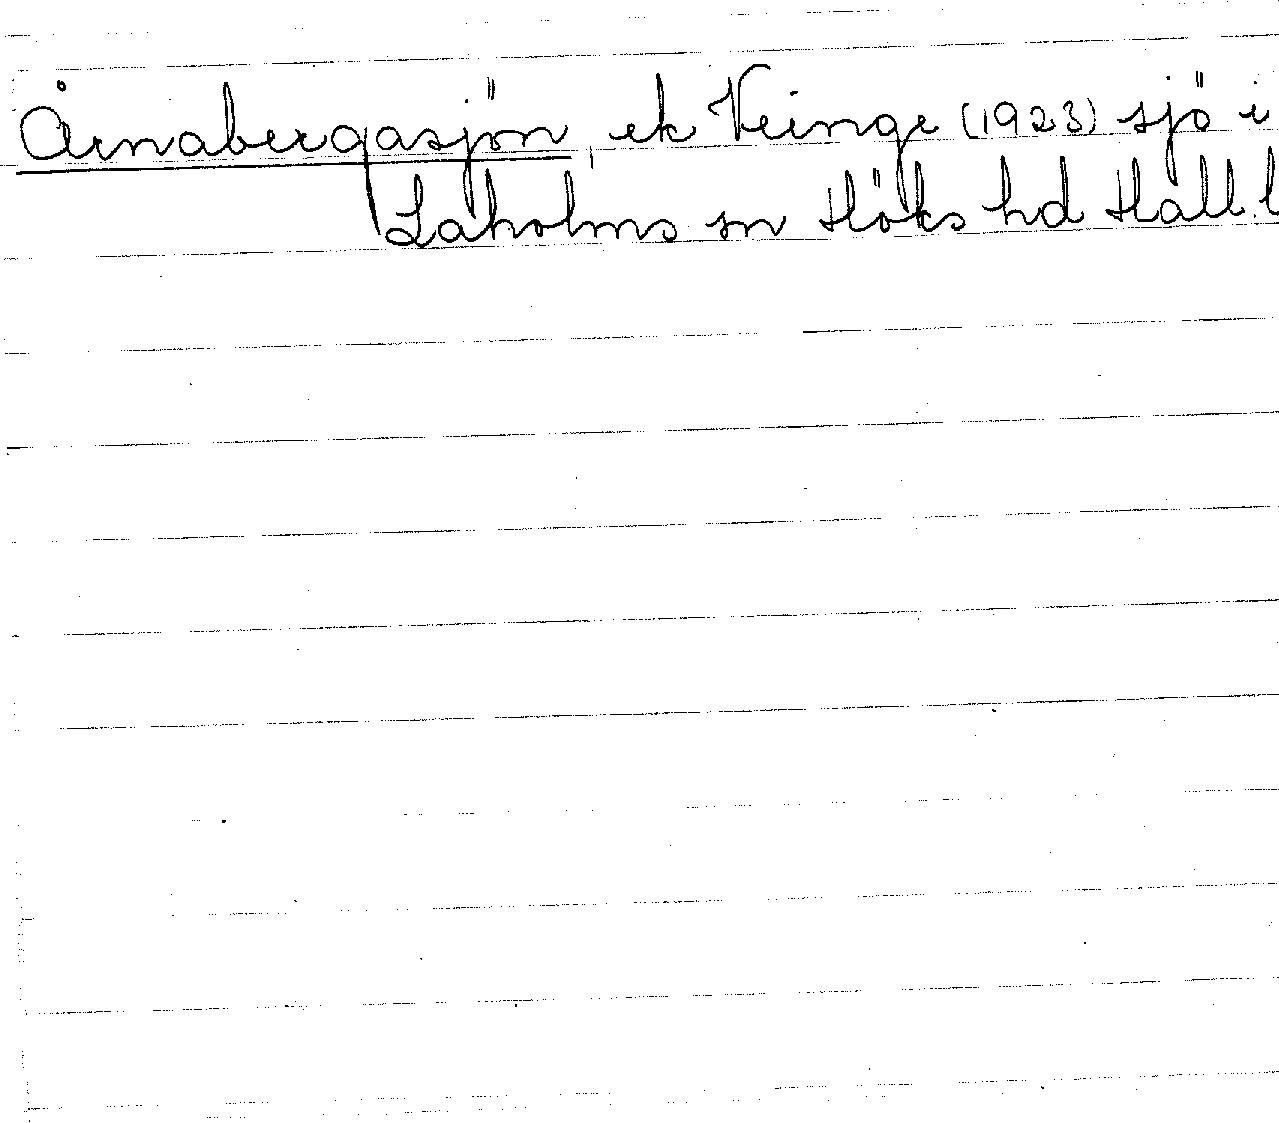 Årnabergasjön, ek Veinge (1923) sjö i
Laholms sn Höks hd Hall.l